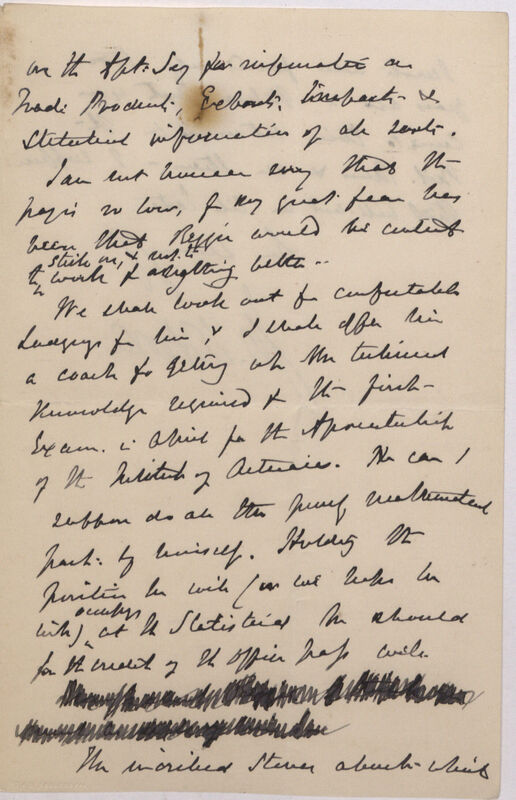 on the Asst: Secy for information on
Trade Products, Exports, Imports &
Statistical information of all sorts.
I am not however sorry that the
pay is so low, for my great fear has
been that Reggie would be content
to stick on, & not to
work for anything better --
We shall look out for comfortable
Lodgings for him, & I shall offer him
a coach for getting up the technical
knowledge required for the first
Exam. in April for the Associateship
of the Institute of Actuaries. He can I
suppose do all the purely mathematical
part: by himself. Holding the
position he will (or we hope he
will) occupy at the Statistical he should
for the credit of the office pass well.
The inscribed Stones about which